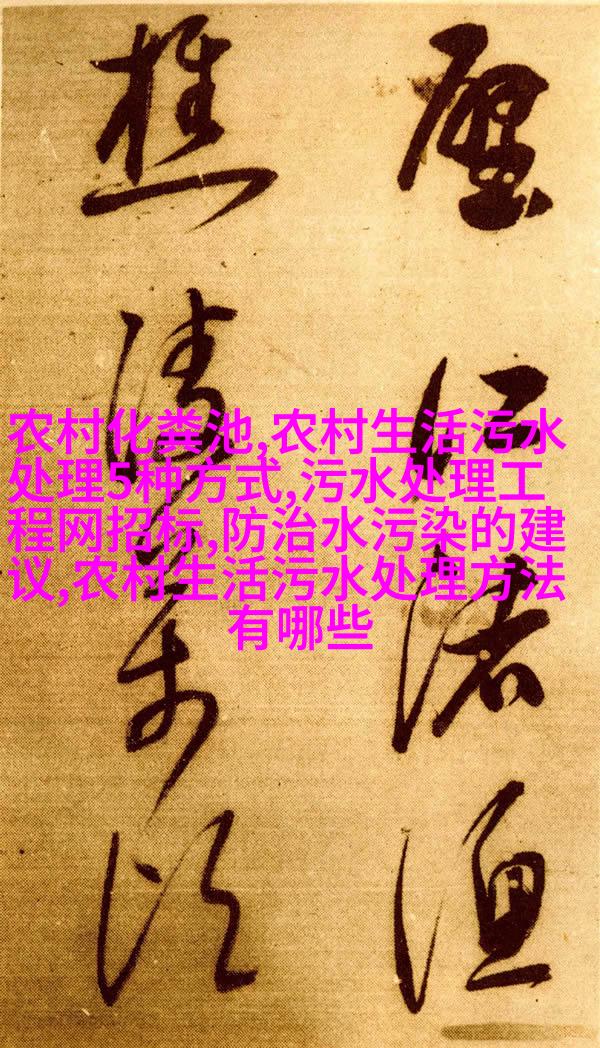 农村化粪池,农村生活污水
处理5种方式,污水处理工
程网招标,防治水污染的建
议,农村生活污水处理方法
有哪些
江渚渔
樵